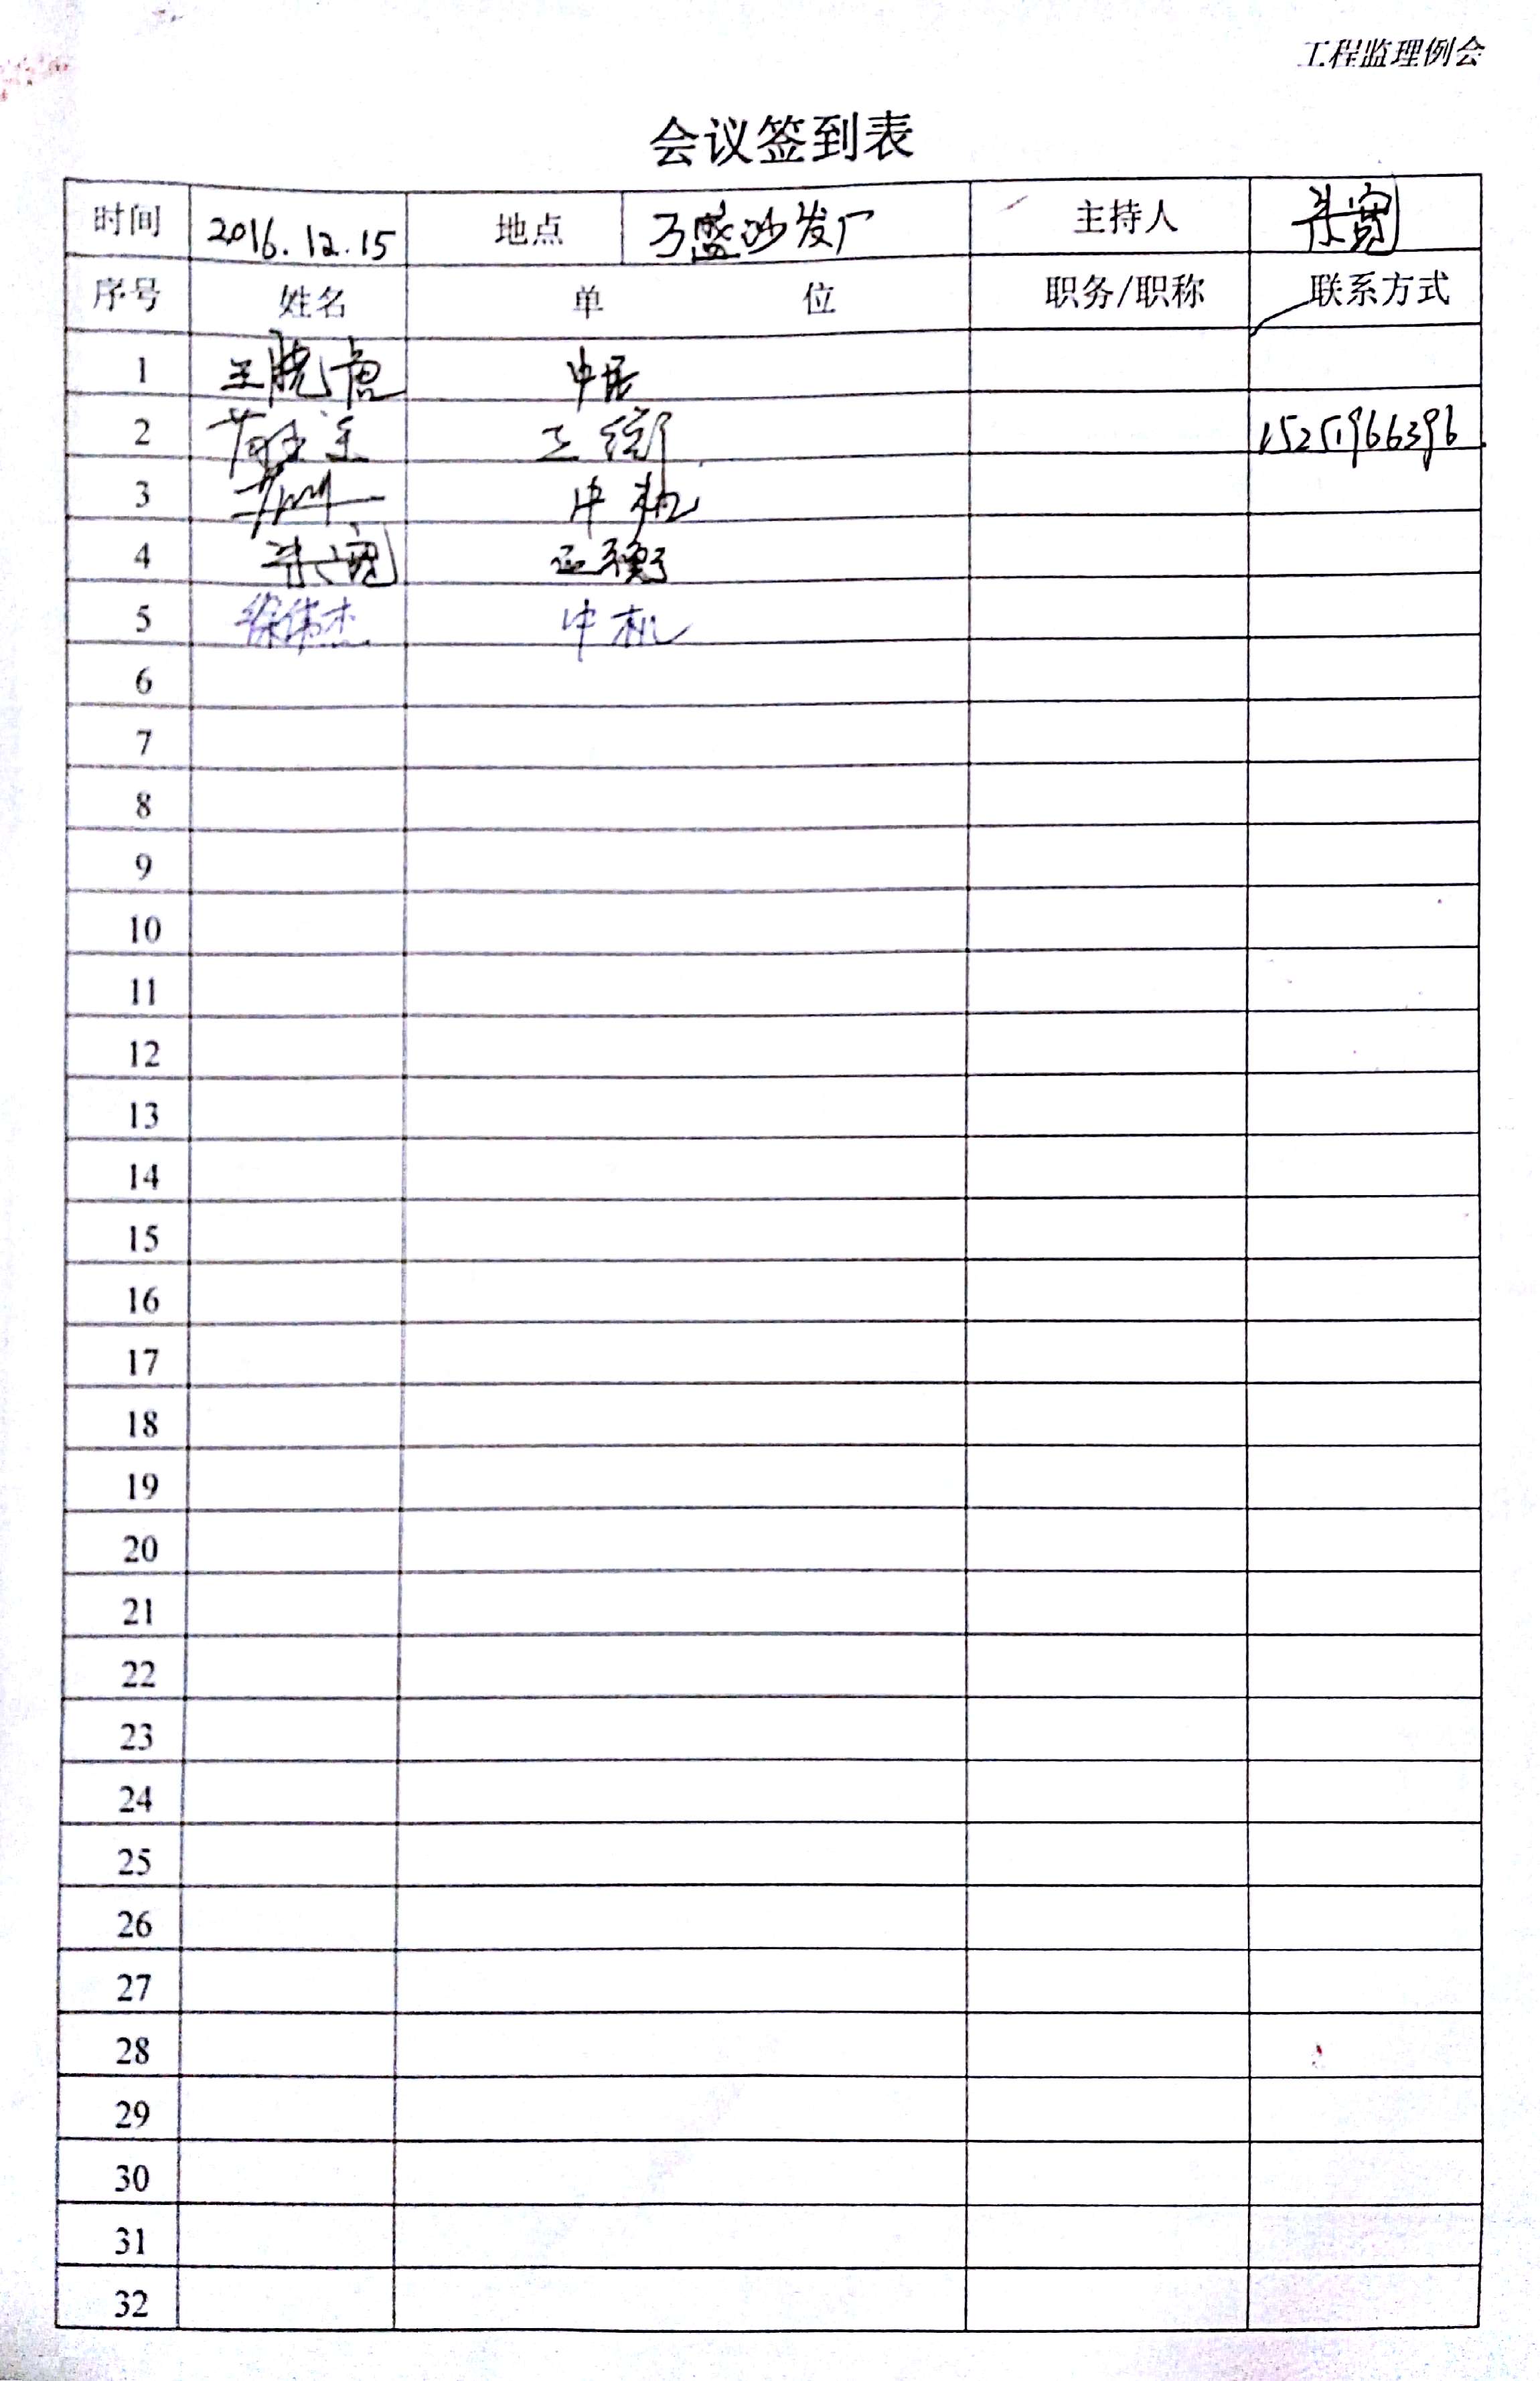 工程监理例会
会议签到表
时间 2016.12.15 地点 万盛沙发厂 主持人 朱宽
序号 姓名 单 位 职务/职称 联系方式
1 王晓虎 中居
2 15251966396
3 中机
4 朱宽 正衡
5 徐伟杰 中机
6
7
8
9
10
11
12
13
14
15
16
17
18
19
20
21
22
23
24
25
26
27
28
29
30
31
32